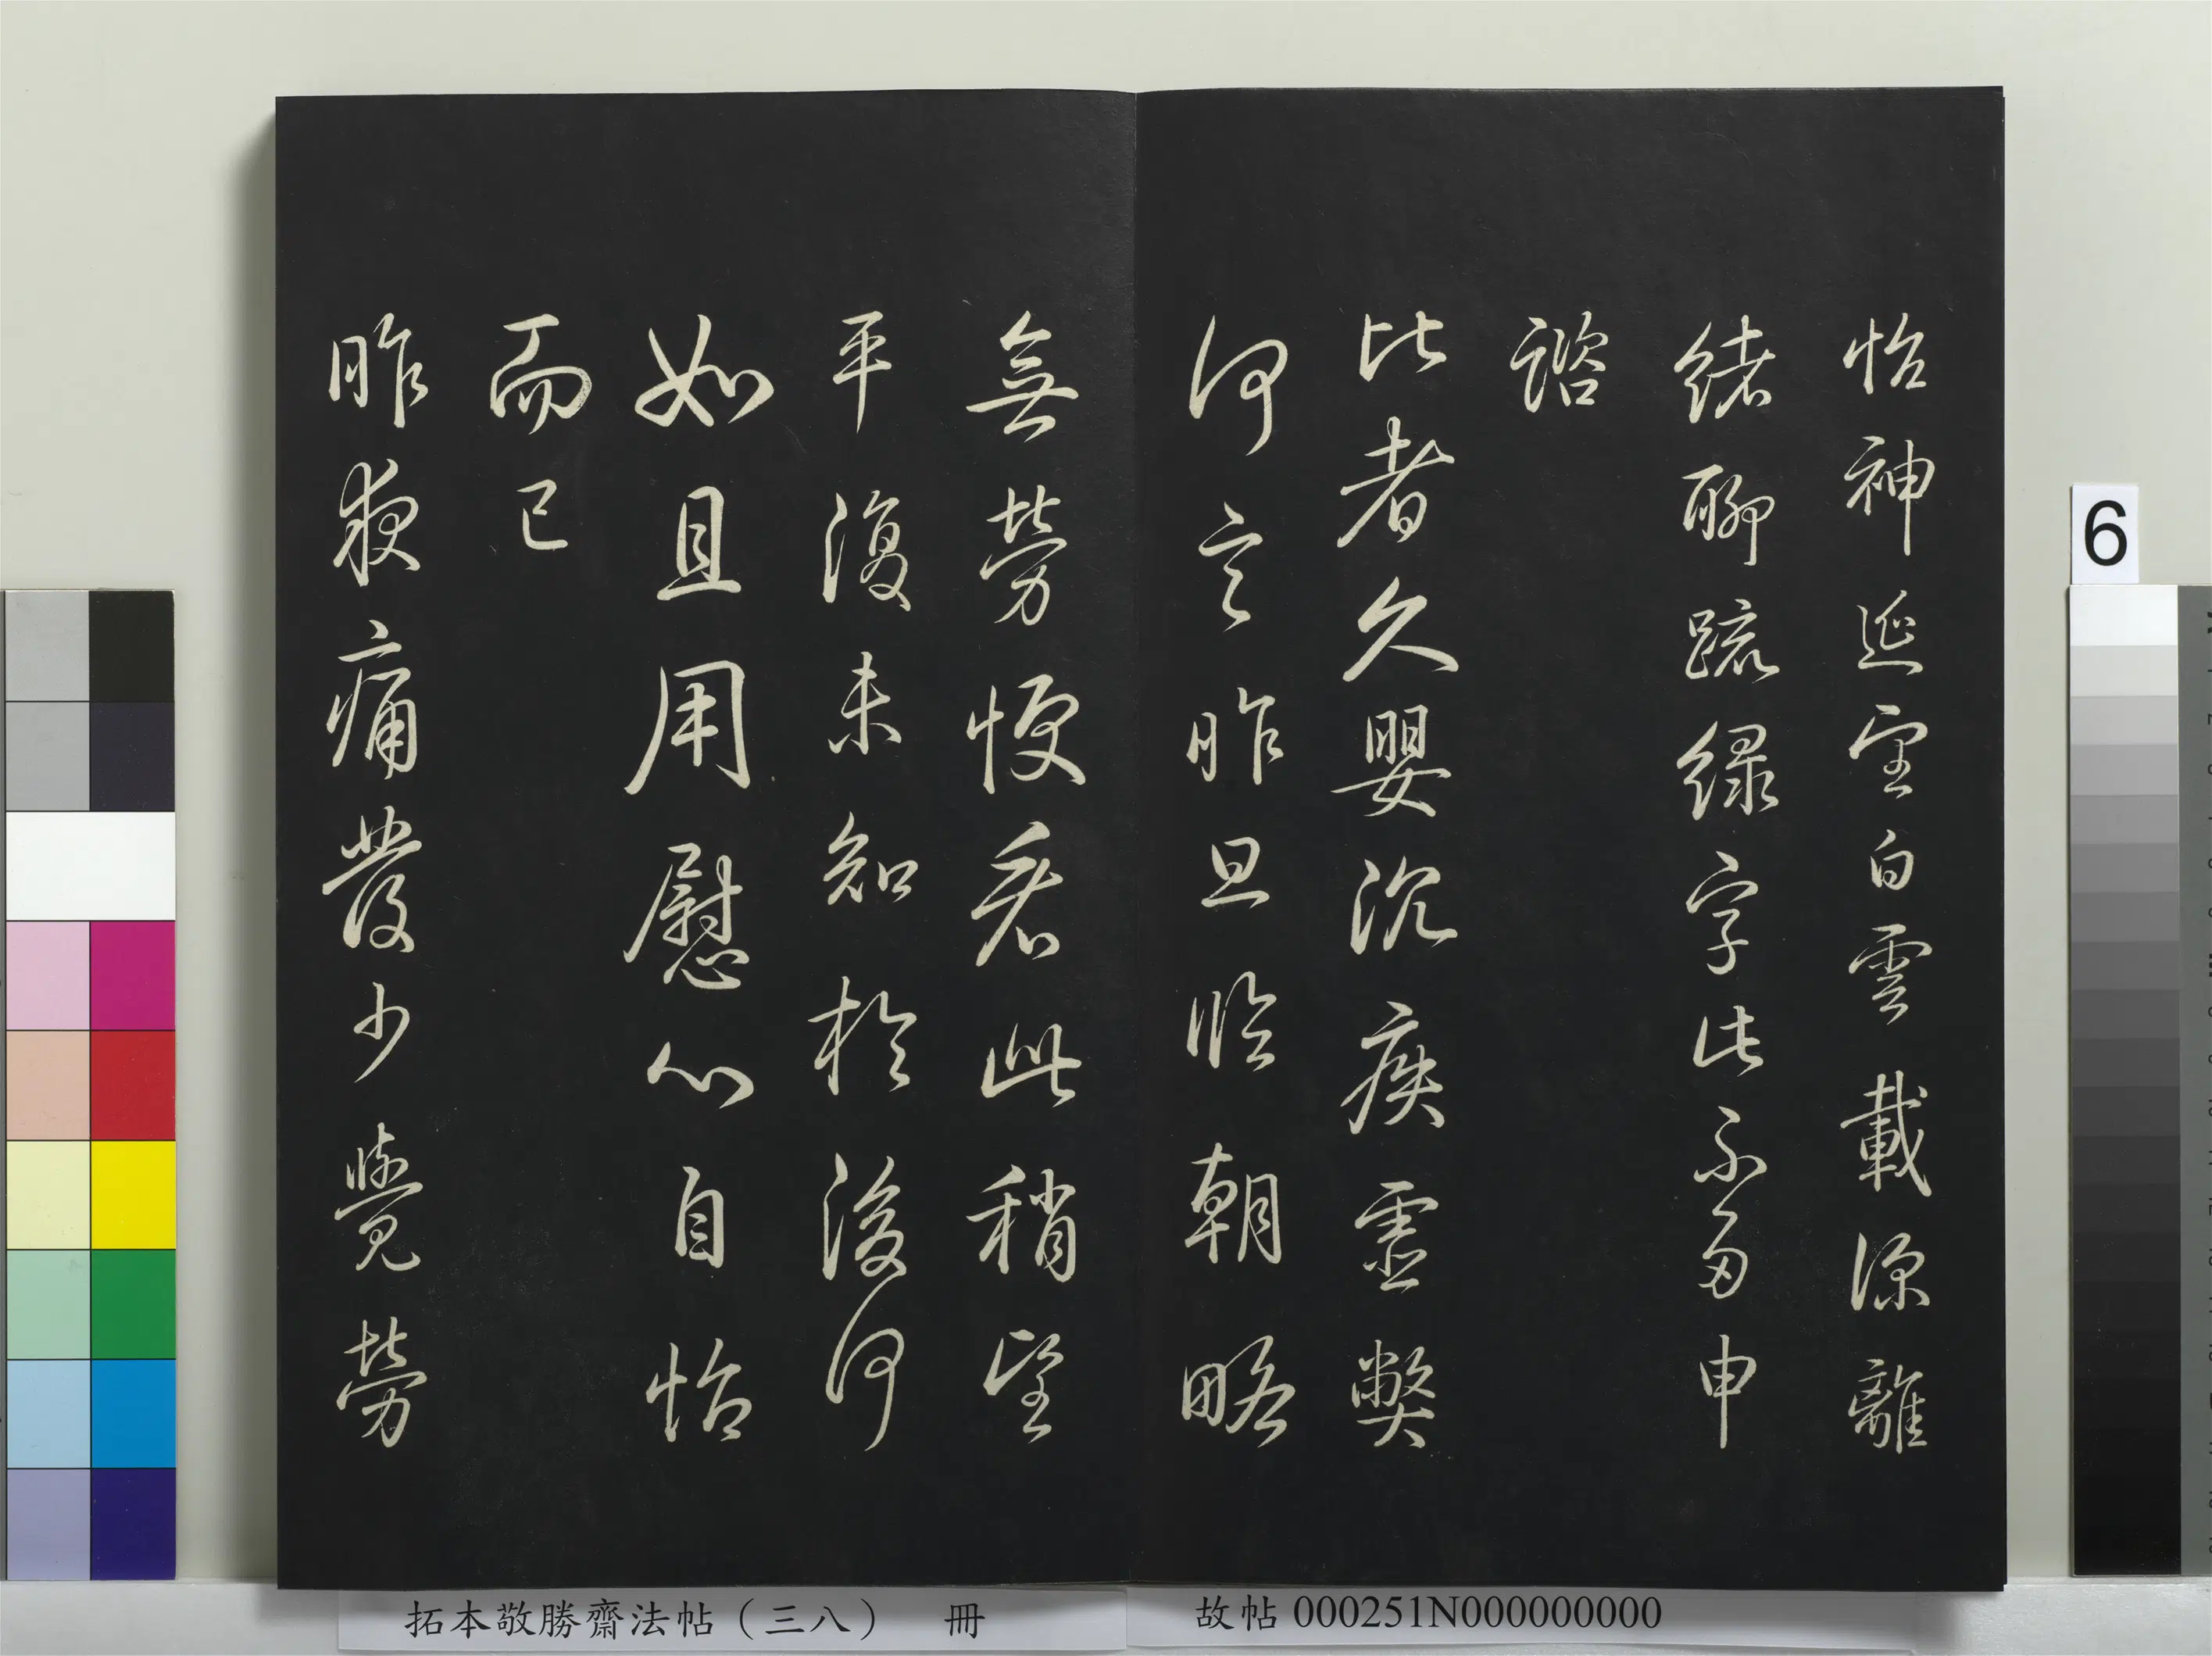 怡神延望白雲載深離
緒聊疏綠字此不多申
諮
比者久嬰沉疾靈弊
何言昨旦臨朝略
無勞便君此稍望
平復未知於後何
如且用慰心自怡
而已
昨夜痛發少覺勞
6
拓本敬勝齋法帖（三八）　冊
故帖 000251N000000000